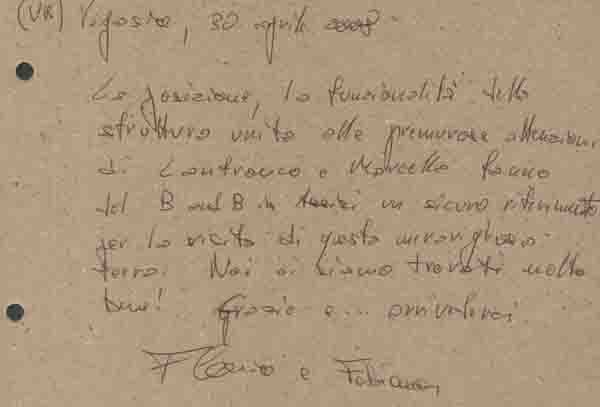 (VR) Vigasio, 30 aprile 2008
La posizione, la funzionalità della
struttura unita alle premurose attenzioni
di Lanfranco e Marcella fanno
del B and B in Assisi un sicuro riferimento
per la visita di questa meravigliosa
terra. Noi ci siamo trovati molto
bene! Grazie e... arrivederci
e